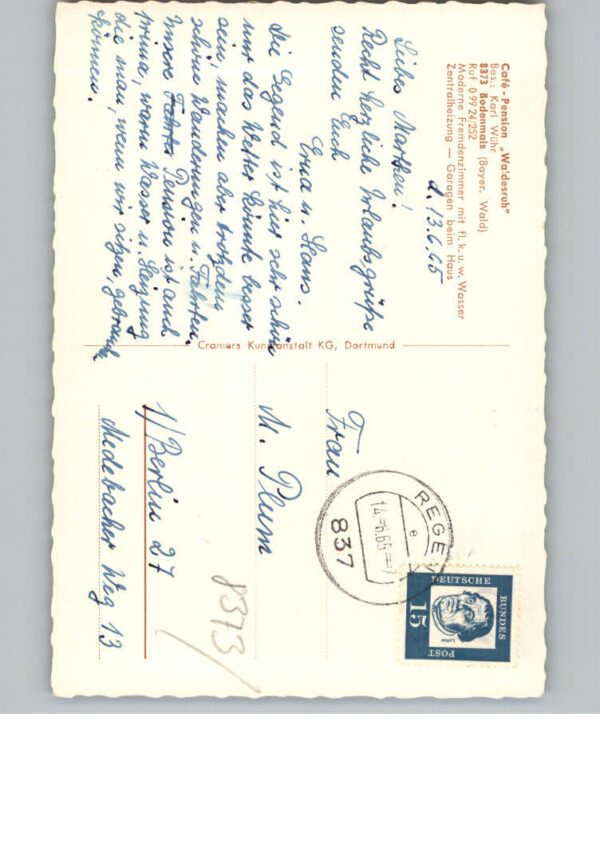 Café-Pension „Waldesruh"
Bes.: Karl Wühr
8373 Bodenmais (Bayer. Wald)
Ruf 0 99 24/252
Moderne Fremdenzimmer mit fl. k. u. w. Wasser
Zentralheizung — Garagen beim Haus
d. 13.6.65
Liebes Marthchen!
Recht herzliche Urlaubsgrüße
senden Euch
Erna u. Hans.
Die Gegend ist hier sehr schön
nur das Wetter könnte besser
sein, machen aber trotzdem
schöne Wanderungen u. Fahrten.
Unsere Pension ist auch
prima, warm Wasser u. Heizung
die man, wenn wir sitzen, gebrauch.
können.
Cramers Kunstanstalt KG, Dortmund
REGEN
e
14.-6.65--7
837
DEUTSCHE
BUNDES
POST
15
Luther
Frau
M. Plum
1/Berlin 27
Medebacher Weg 13
8373/